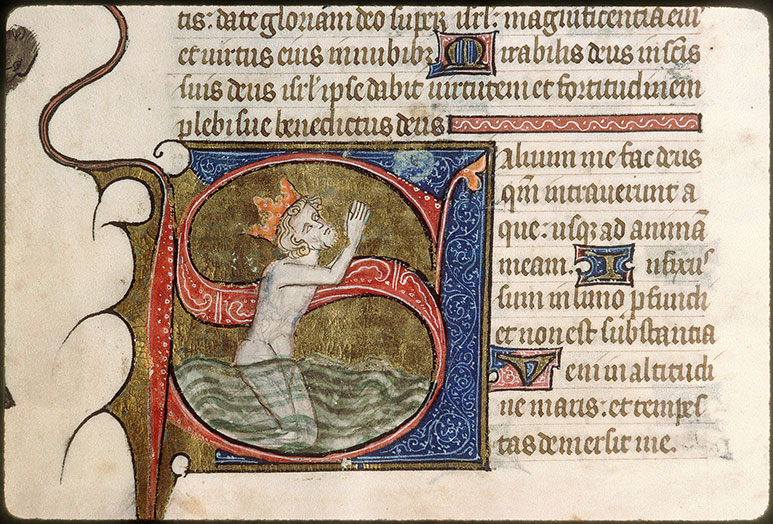 tis: date gloriam deo super isrl: magnificentia eiꝰ
et virtus eius in nubibꝫ Mirabilis deus in scīs
suis deus isrl' ipse dabit virtutem et fortitudinem
plebi sue benedictus deus
Saluum me fac deus
qm̄ intrauerunt a
que: usqꝫ ad animā
meam. Infixus
sum in limo ꝓfundi
et non est substantia
Veni in altitudi
ne maris: et tempes
tas demersit me.